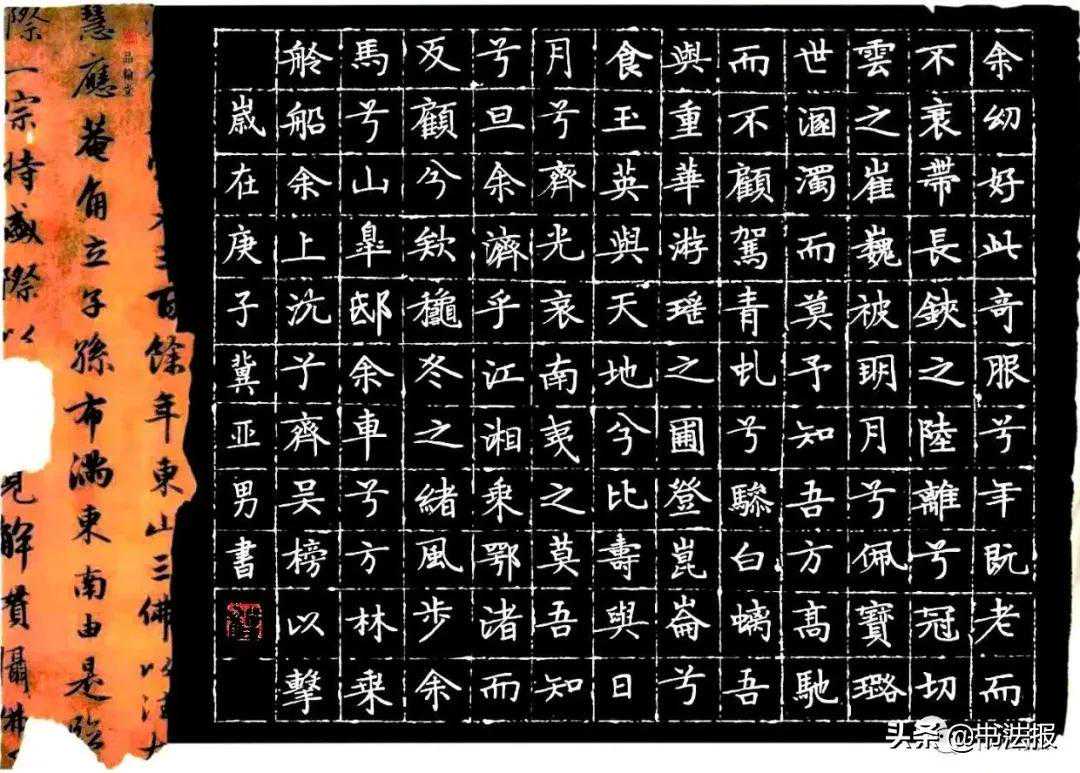 余幼好此奇服兮年既老而
不衰帶長鋏之陸離兮冠切
雲之崔巍被明月兮佩寶璐
世溷濁而莫予知吾方高馳
而不顧駕青虬兮驂白螭吾
與重華游瑤之圃登崑崙兮
食玉英與天地兮比壽與日
月兮齊光哀南夷之莫吾知
兮旦余濟乎江湘乘鄂渚而
反顧兮欸穐冬之緒風步余
馬兮山皋邸余車兮方林乘
舲船余上沅兮齊吳榜以擊
歲在庚子冀亞男書
百餘年東山三佛以法
慧應菴角立子孫布滿東南由是臨
際一宗特盛際以見解貫攝佛
品翰堂
头条 @书法报